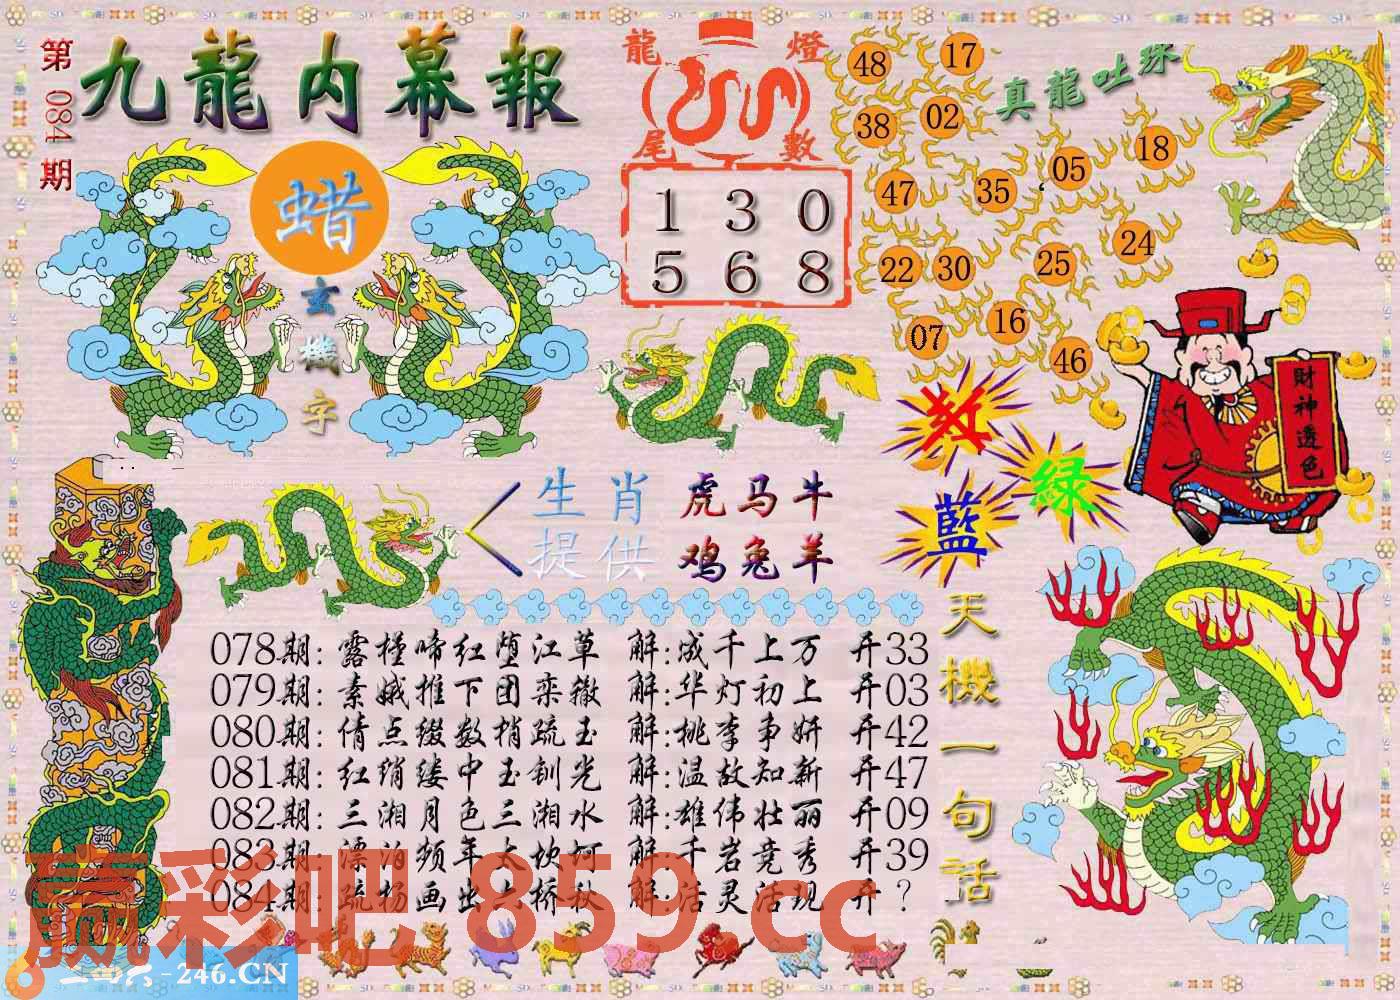 第084期
九龍内幕報
蜡
玄機字
龍燈
尾數
1 3 0
5 6 8
真龍吐珠
48 17
38 02
47 35 05 18
22 30 25 24
07 16 46
財神透色
紅
綠
藍
生肖 虎马牛
提供 鸡兔羊
天機一句話
078期: 露槿啼红堕江草 解:成千上万 开33
079期: 素娥推下团栾辙 解:华灯初上 开03
080期: 倩点缀数梢疏玉 解:桃李争妍 开42
081期: 红绡缕中玉钏光 解:温故知新 开47
082期: 三湘月色三湘水 解:雄伟壮丽 开09
083期: 漂泊频年大坎坷 解:千岩竞秀 开39
084期: 疏杨画出六桥秋 解:活灵活现 开?
赢彩吧 859.cc
二四六-246.CN